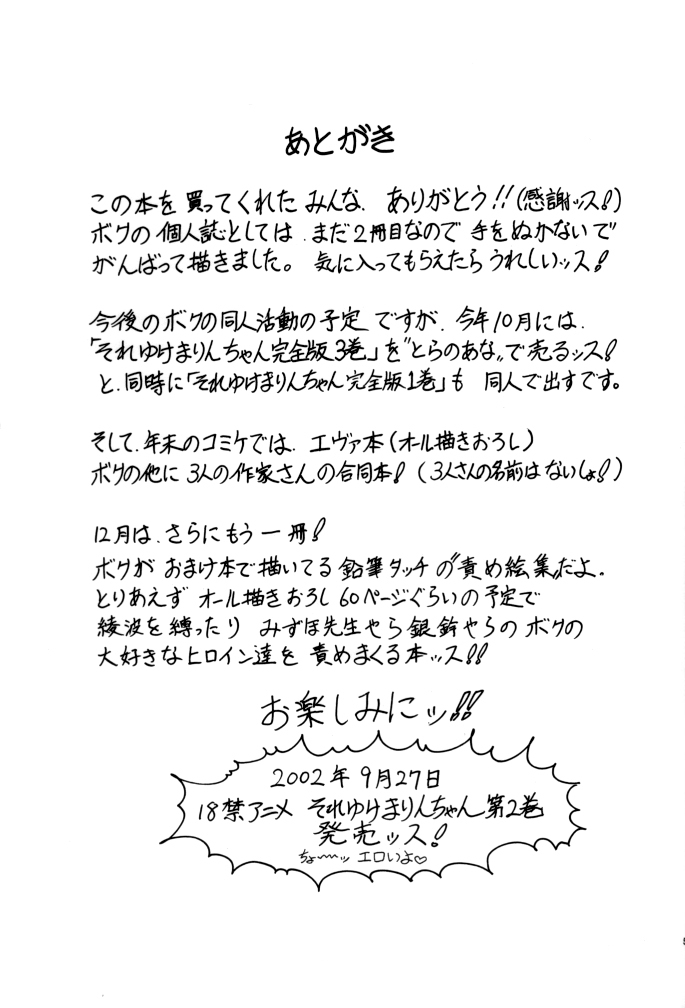 あとがき
この本を買ってくれたみんな、ありがとう!!(感謝ッス!)
ボクの個人誌としては、まだ2冊目なので手をぬかないで
がんばって描きました。気に入ってもらえたらうれしいッス!
今後のボクの同人活動の予定ですが、今年10月には、
「それゆけまりんちゃん完全版3巻」を"とらのあな"で売るッス!
と、同時に「それゆけまりんちゃん完全版1巻」も同人で出すです。
そして、年末のコミケでは、エヴァ本(オール描きおろし)
ボクの他に3人の作家さんの合同本!(3人さんの名前はないしょ!)
12月は、さらにもう一冊!
ボクがおまけ本で描いてる鉛筆タッチの"責め絵集"だよ。
とりあえずオール描きおろし60ページぐらいの予定で
綾波を縛ったりみずほ先生やら銀鈴やらのボクの
大好きなヒロイン達を責めまくる本ッス!!
お楽しみにッ!!
2002年9月27日
18禁アニメ それゆけまりんちゃん第2巻
発売ッス!
ちょ〜〜ッエロいよ♡